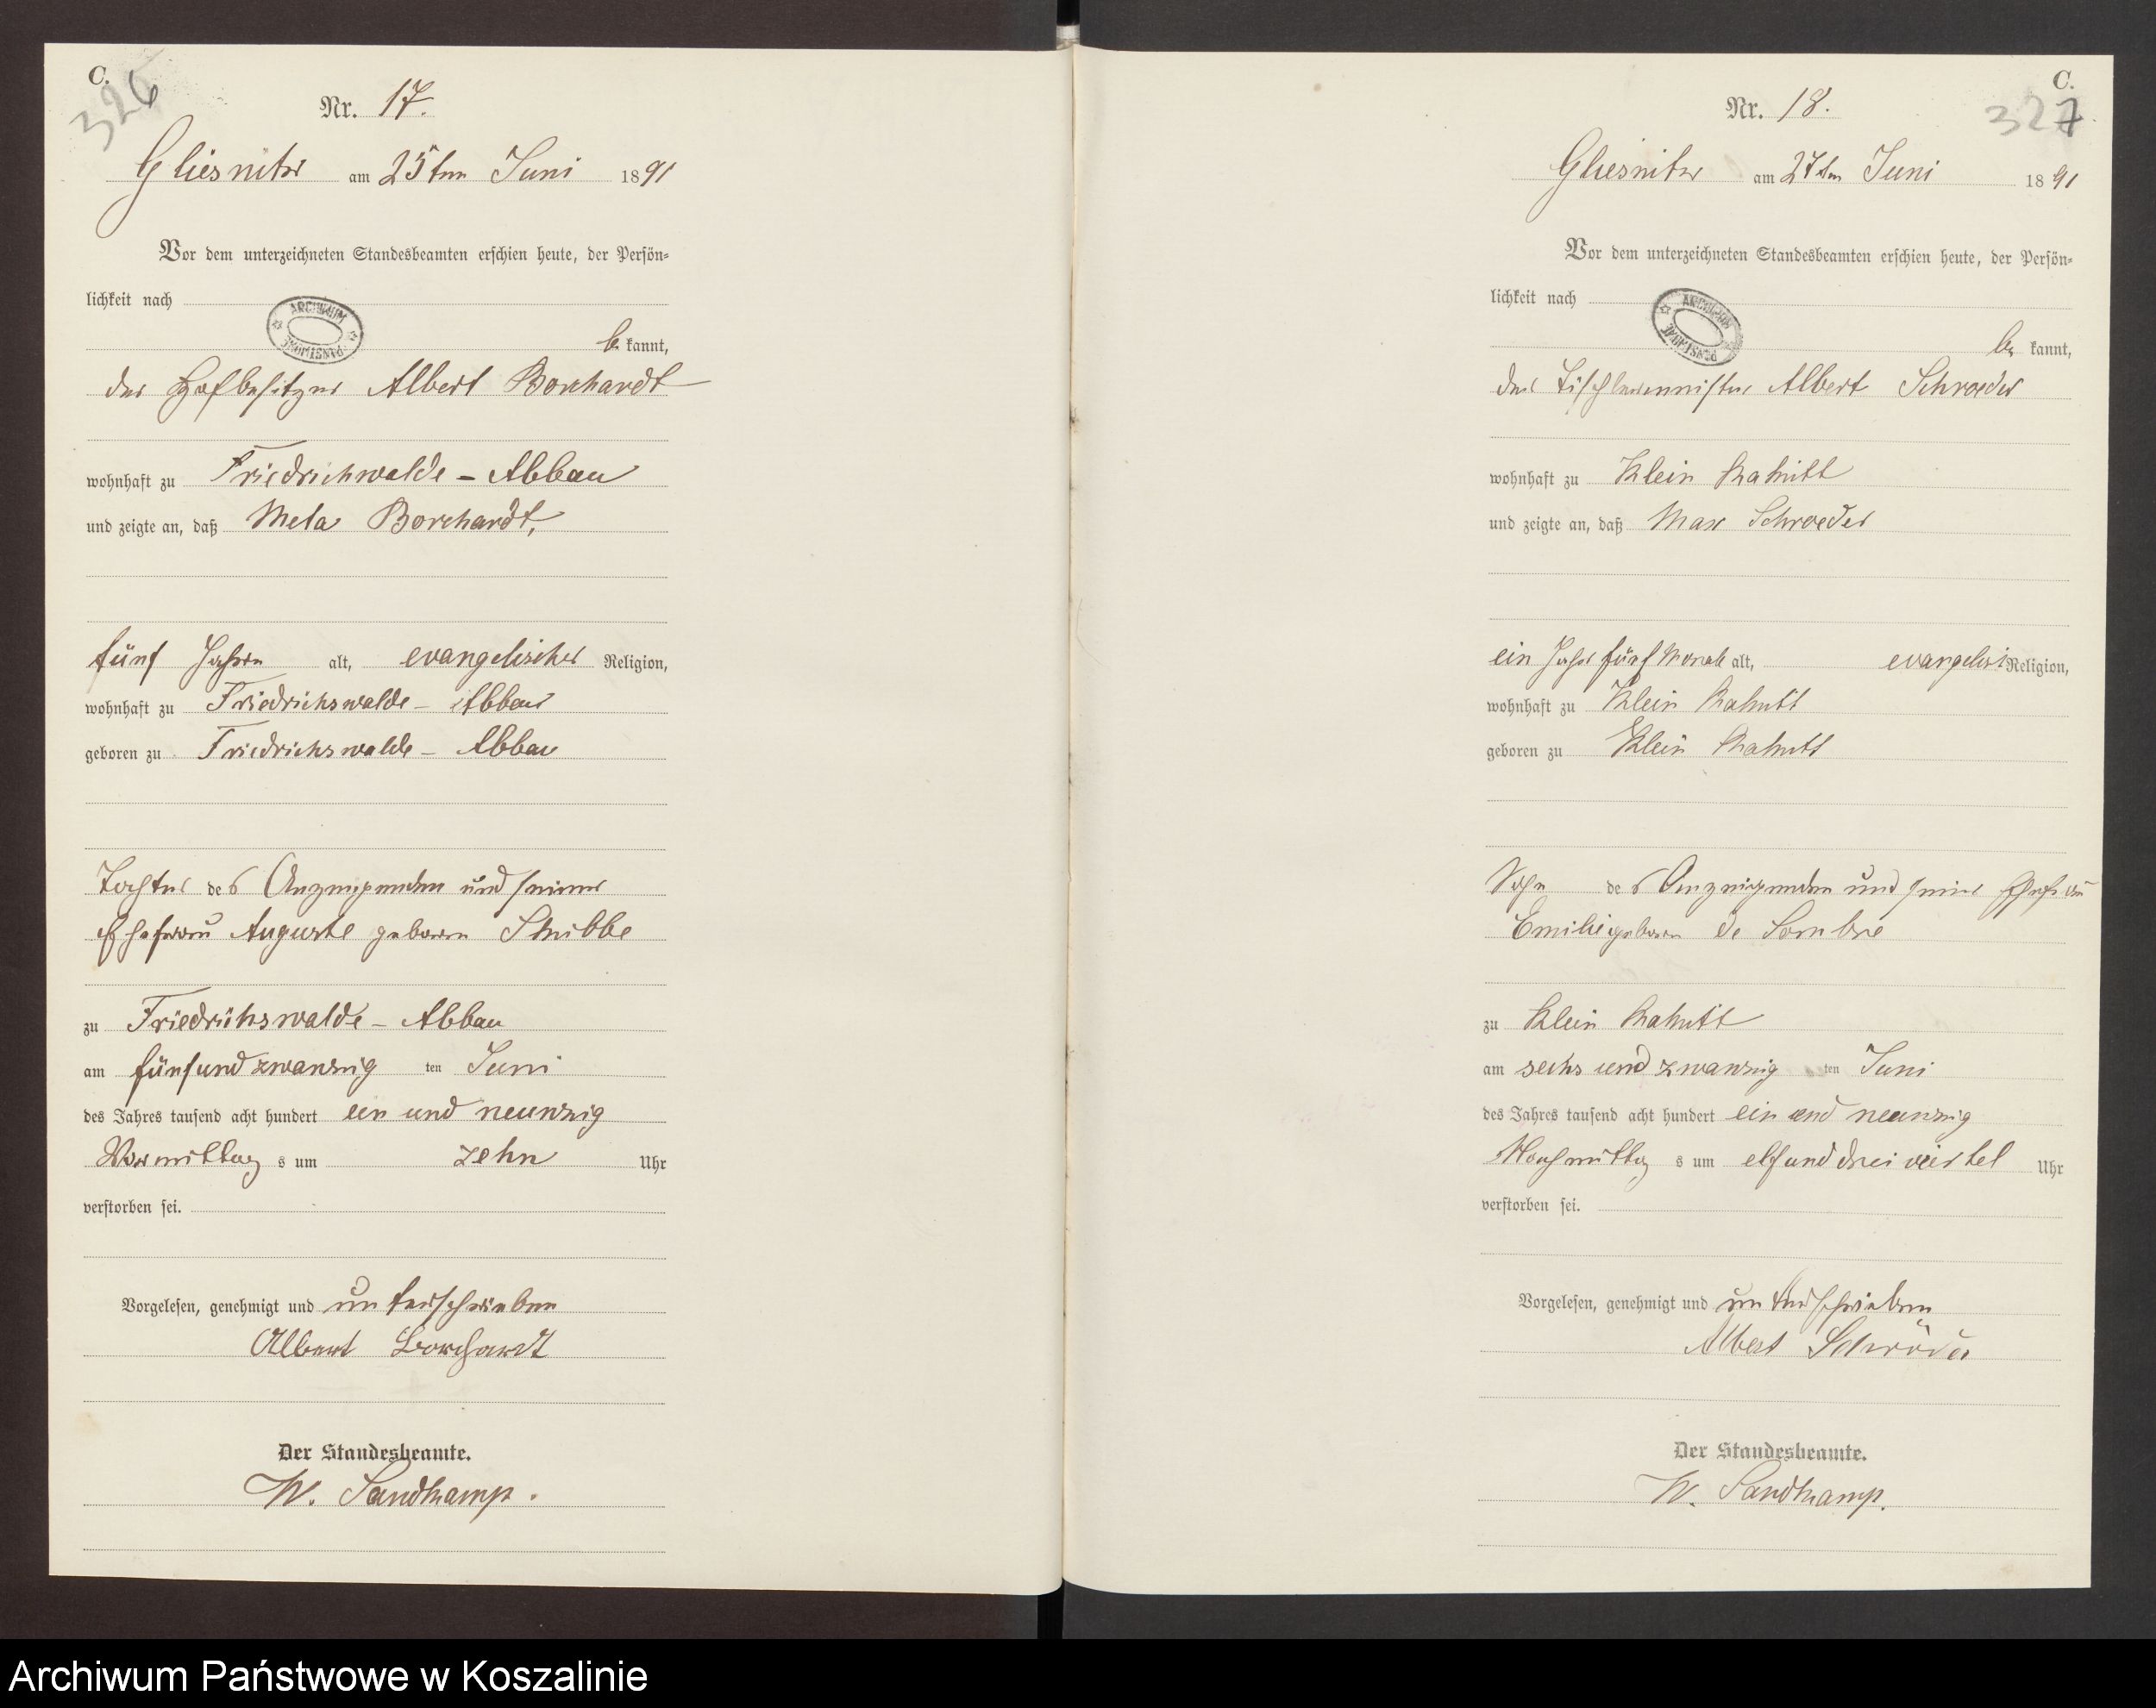 C.
326
Nr. 17.
Gliesnitz am 25ten Juni 1891
Vor dem unterzeichneten Standesbeamten erschien heute, der Persön-
lichkeit nach
ARCHIWUM PAŃSTWOWE
be kannt,
der Hofbesitzer Albert Borchardt
wohnhaft zu Friedrichwalde - Abbau
und zeigte an, daß Meta Borchardt,
fünf Jahre alt, evangelischer Religion,
wohnhaft zu Friedrichswalde - Abbau
geboren zu Friedrichswalde - Abbau
Tochter des Anzeigenden und seiner
Ehefrau Auguste geboren Stubbe
zu Friedrichswalde - Abbau
am fünfundzwanzig ten Juni
des Jahres tausend acht hundert ein und neunzig
Vormittag s um zehn Uhr
verstorben sei.
Vorgelesen, genehmigt und unterschrieben
Albert Borchardt
Der Standesbeamte.
W. Sandkamp.
C.
327
Nr. 18.
Gliesnitz am 27ten Juni 1891
Vor dem unterzeichneten Standesbeamten erschien heute, der Persön-
lichkeit nach
ARCHIWUM PAŃSTWOWE
be kannt,
der Tischlermeister Albert Schroeder
wohnhaft zu Klein
und zeigte an, daß Max Schroeder
ein Jahr fünf Monate alt, evangelisch Religion,
wohnhaft zu Klein
geboren zu Klein
Sohn des Anzeigenden und seiner Ehefrau
Emilie geboren de Sombre
zu Klein
am sechs und zwanzig ten Juni
des Jahres tausend acht hundert ein und neunzig
Nachmittag s um elf und drei viertel Uhr
verstorben sei.
Vorgelesen, genehmigt und unterschrieben
Albert Schröder
Der Standesbeamte.
W. Sandkamp.
Archiwum Państwowe w Koszalinie